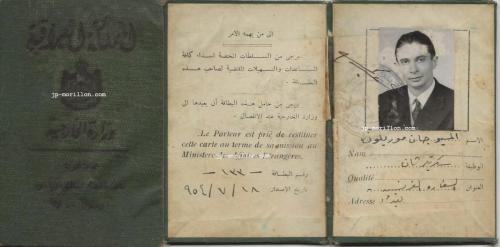 المملكة العراقية
jp-morillon.com
وزارة الخارجية
الى من يهمه الأمر
يرجى من السلطات المختصة اسداء كافة
المساعدات والتسهيلات المقتضية لصاحب هذه
البطاقة ٠
يرجى من حامل هذه البطاقة أن يعيدها الى
وزارة الخارجية عند الانفصال ٠
jp-morillon.com
Le Porteur est prié de restituer
cette carte au terme de sa mission au
Ministère des Affaires Etrangères.
رقم البطاقة - ١٣٣ -
تاريخ الاصدار ٩٥٤/٧/١٨
jp-morillon.com
الاسم المسيو جان موريلون
Name
الوظيفة سكرتير ثان
Qualité
العنوان
Adresse بغداد